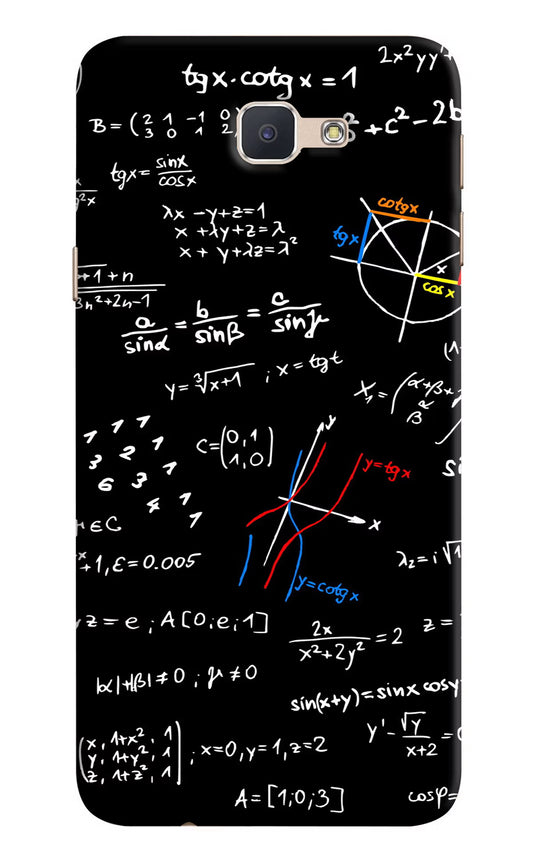 2x²yy'
tgx·cotgx=1
B=(2 1 -1 0
3 0 1 2
+c²-2b
tgx=sinx/cosx
λx-y+z=1
x+λy+z=λ
x+y+λz=λ²
cotgx
tgx
x
cosx
+1+n
3n²+2n-1
a/sinα=b/sinβ=c/sinγ
y=∛x+1 ; x=tgt
X₁=(α+β+
α
β
1 1 1
3 2 1
6 3 1
4 1
1
C=(0,1
1,0)
y
y=tgx
x
y=cotgx
∈C
+1,ε=0.005
λ₂=i√1
z=e ; A[0;e;1]
2x/x²+2y²=2
z=
|α|+|β|≠0 ; γ≠0
sin(x+y)=sinx cosy
(x, 1+x², 1
y, 1+y², 1
z, 1+z², 1) ; x=0,y=1,z=2
y'-√y/x+2=
A=[1;0;3]
cosφ=